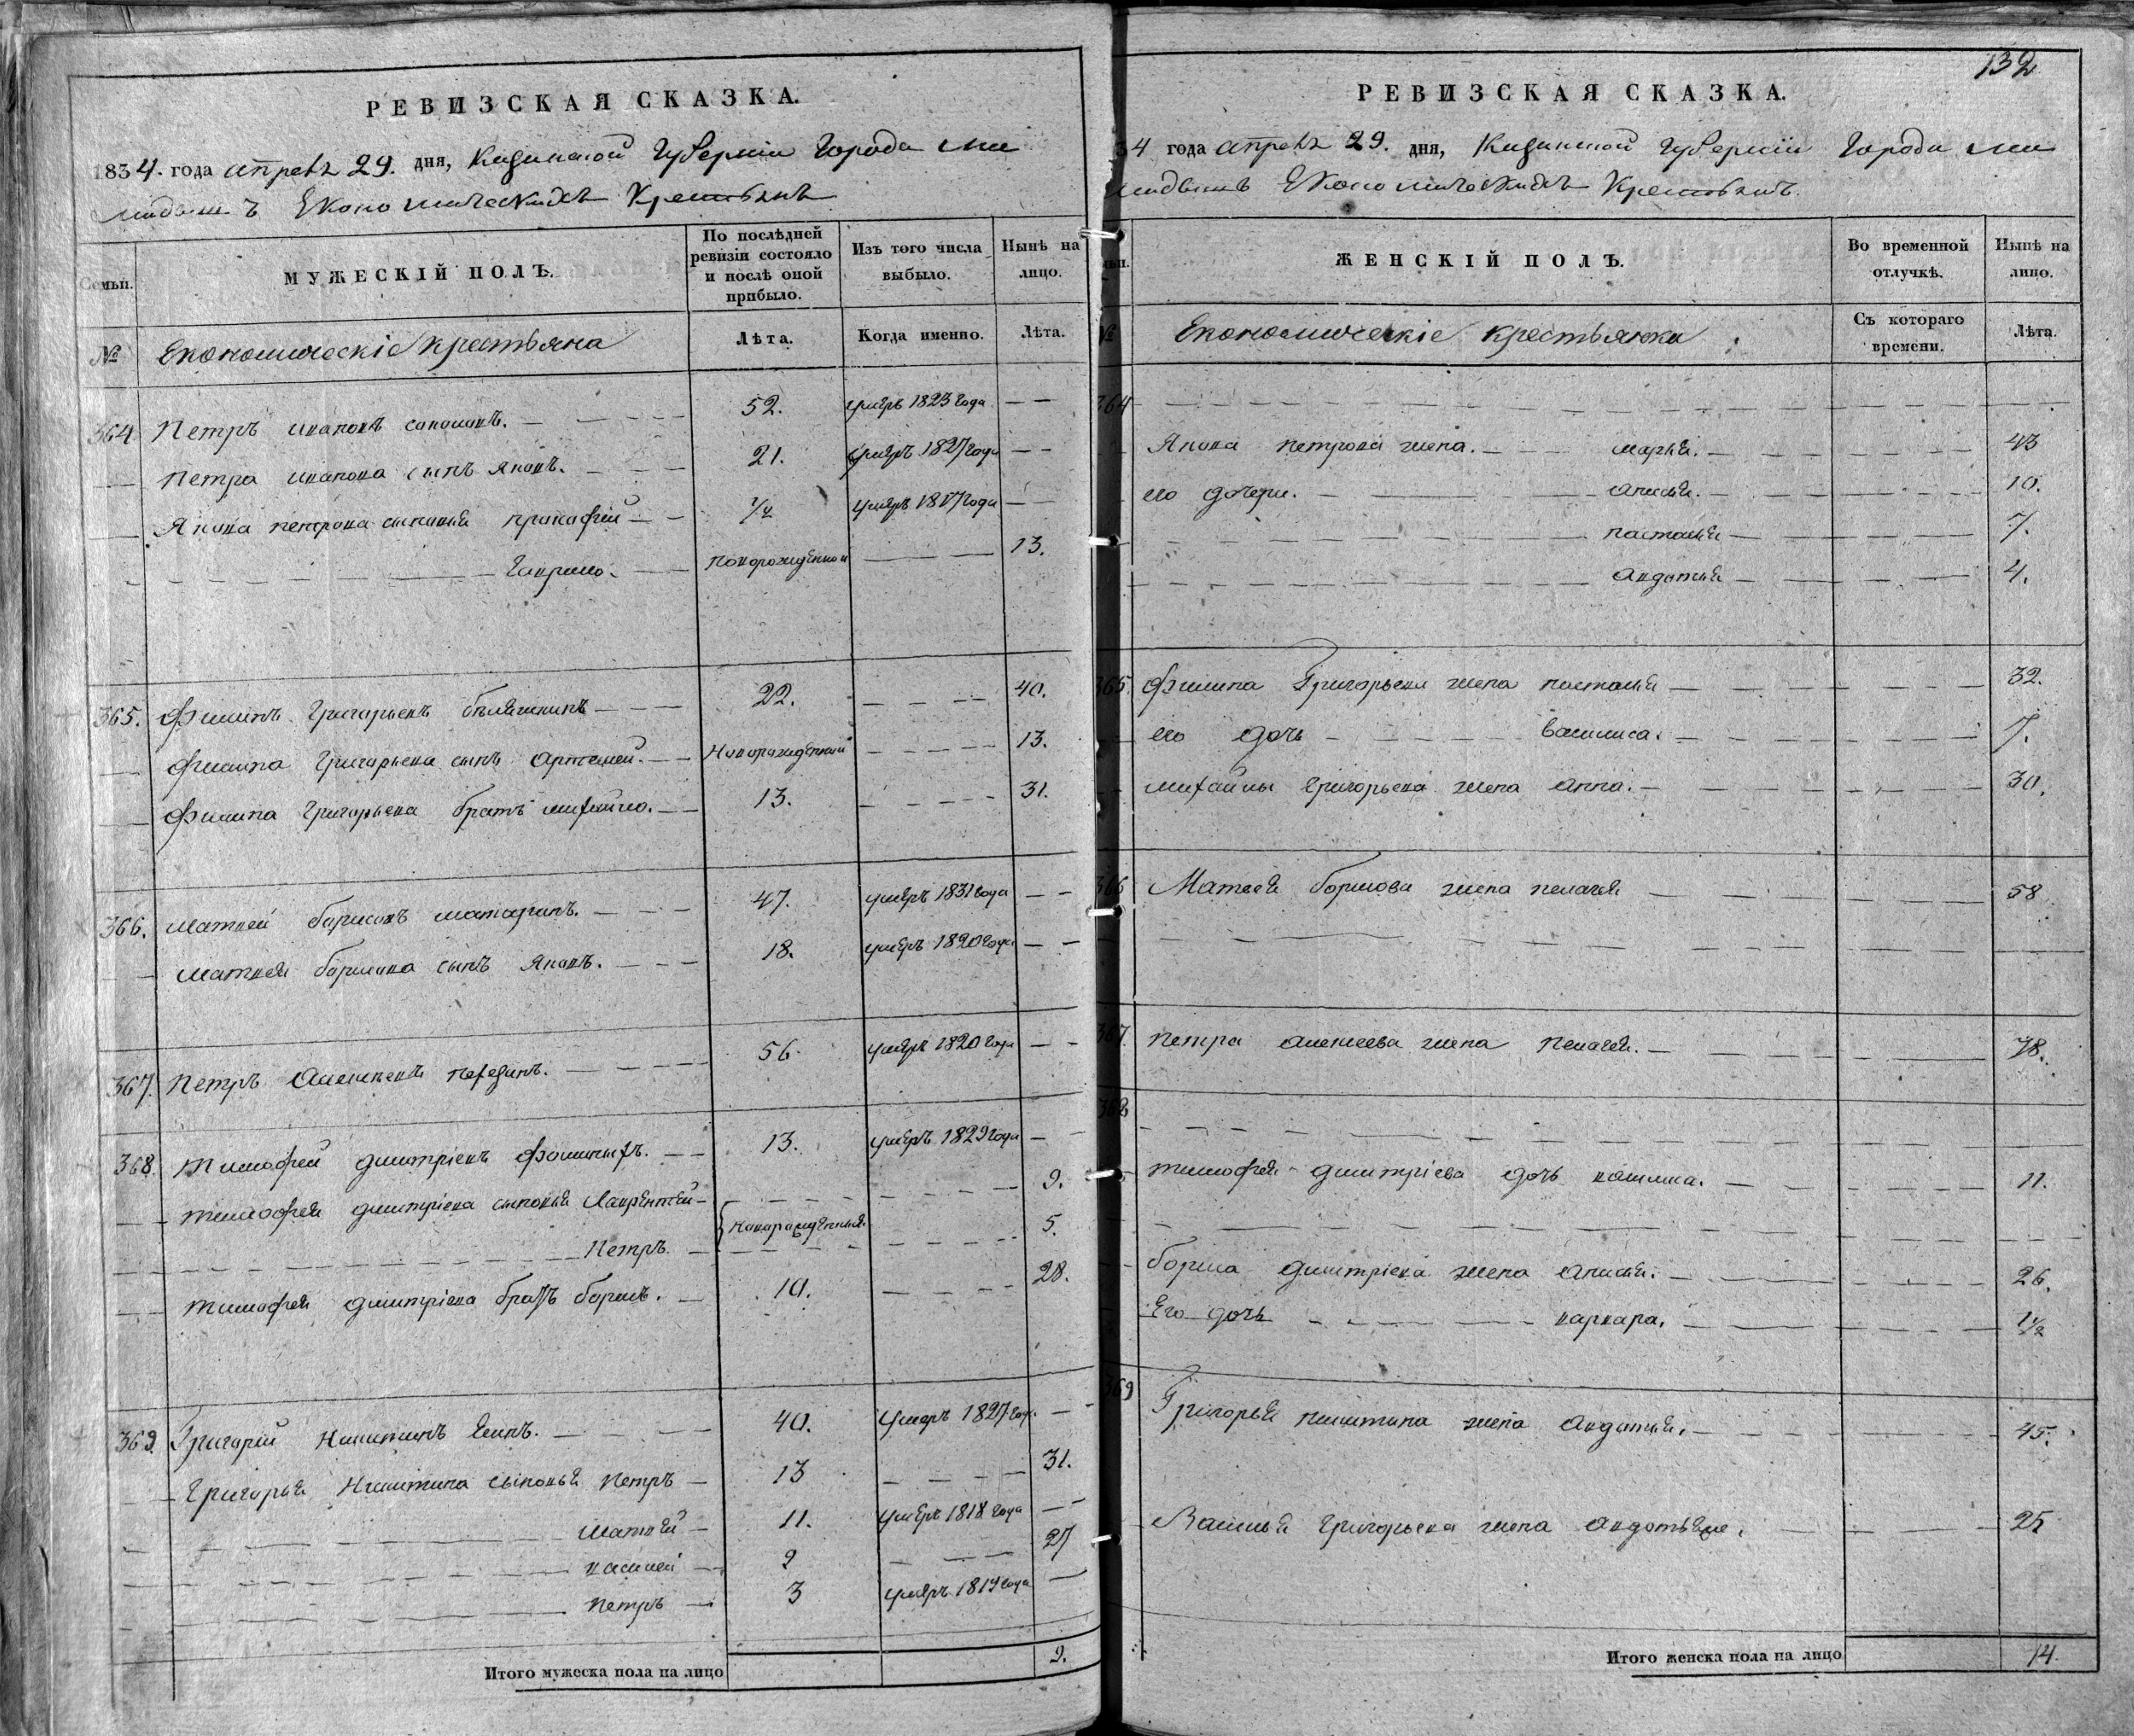 РЕВИЗСКАЯ СКАЗКА.
1834. года апреля 29. дня, Казанской Губернiи Города Ма
мадышъ Економическихъ Крестьянъ
Семьи.
МУЖЕСКIЙ ПОЛЪ.
По послѣдней ревизiи состояло и послѣ оной прибыло.
Изъ того числа выбыло.
Нынѣ на лицо.
№
Економическiе крестьяна
Лѣта.
Когда именно.
Лѣта.
364 Петръ Ивановъ 52. умеръ 1823 года
Петра Иванова сынъ Яковъ. 21. умеръ 1827 года
Якова Петрова сыновья Прокофiй 1/2 умеръ 1817 года
Гаврило. новорожденной 13.
365. Филипъ Григорьевъ 22. 40.
Филипа Григорьева сынъ Артемей. Новорожденный 13.
Филипа Григорьева братъ Михайло. 13. 31.
366. Матвей Борисовъ 47. умеръ 1831 года
Матвея Борисова сынъ Яковъ. 18. умеръ 1820 года
367. Петръ Алексеевъ 56. умеръ 1820 года
368. Тимофей Димитрiевъ Фоминыхъ. 13. умеръ 1829 года
Тимофея Димитрiева сыновья Лаврентей 9.
Петръ. Новорожденныя 5.
Тимофея Димитрiева братъ Борисъ. 10. 28.
369. Григорiй Никитинъ 40. умеръ 1827 года
Григорья Никитина сыновья Петръ 13 31.
Матвей 11. умеръ 1818 года
Василей 9 27
Петръ 3 умеръ 1819 года
Итого мужеска пола на лицо 9.
132
РЕВИЗСКАЯ СКАЗКА.
34 года апреля 29. дня, Казанской Губернiи Города Ма
мадышъ Економическихъ Крестьянъ.
ЖЕНСКIЙ ПОЛЪ.
Во временной отлучкѣ.
Нынѣ на лицо.
№
Економическiе крестьянки
Съ котораго времени.
Лѣта.
364
Якова Петрова жена. Марья. 43
его дочери. Анисья. 10.
Настасья 7.
Авдотья 4.
365. Филипа Григорьева жена Настасья 32.
его дочь Василиса. 7.
Михайлы Григорьева жена Анна. 30.
366 Матвея Борисова жена Пелагея 58
367. Петра Алексеева жена Пелагея. 78.
368
Тимофея Димитрiева дочь 11.
Бориса Димитрiева жена Анисья. 26.
Его дочь Варвара. 1 1/2
369 Григорья Никитина жена Авдотья. 45.
Василья Григорьева жена Авдотья 25
Итого женска пола на лицо 14.